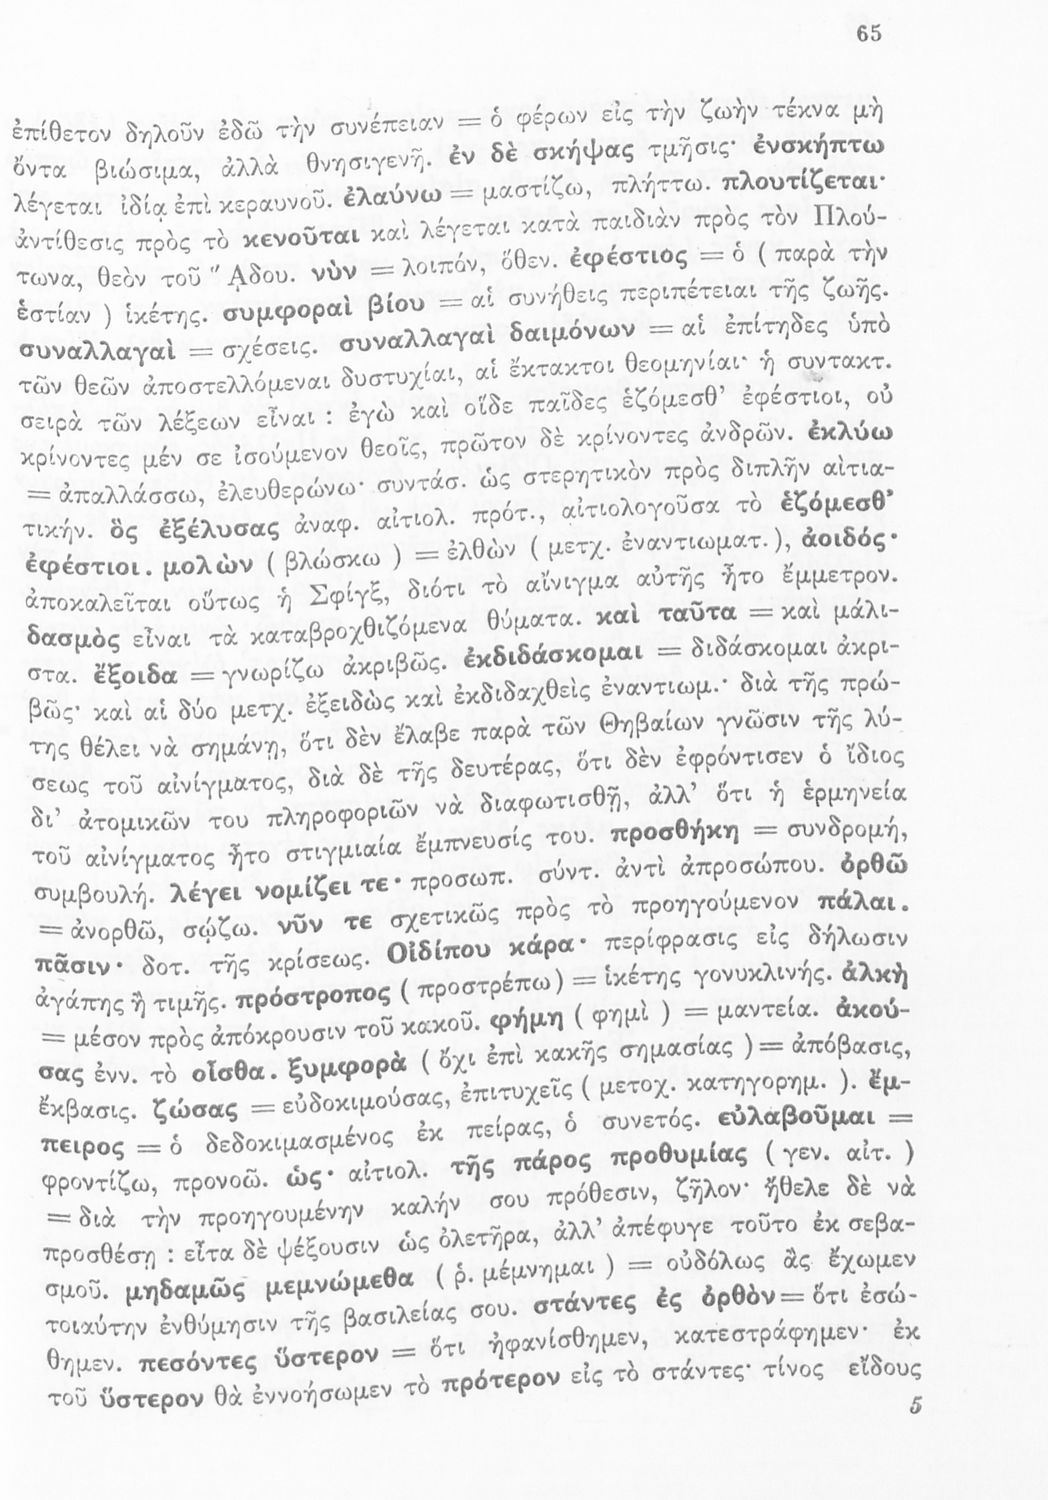 65
ἐπίθετον δηλοῦν ἐδῶ τὴν συνέπειαν = ὁ φέρων εἰς τὴν ζωὴν τέκνα μὴ
ὄντα βιώσιμα, ἀλλὰ θνησιγενῆ. ἐν δὲ σκήψας τμῆσις· ἐνσκήπτω
λέγεται ἰδίᾳ ἐπὶ κεραυνοῦ. ἐλαύνω = μαστίζω, πλήττω. πλουτίζεται·
ἀντίθεσις πρὸς τὸ κενοῦται καὶ λέγεται κατὰ παιδιὰν πρὸς τὸν Πλού-
τωνα, θεὸν τοῦ "ᾼδου. νὺν = λοιπόν, ὅθεν. ἐφέστιος = ὁ ( παρὰ τὴν
ἑστίαν ) ἱκέτης. συμφοραὶ βίου = αἱ συνήθεις περιπέτειαι τῆς ζωῆς.
συναλλαγαὶ = σχέσεις. συναλλαγαὶ δαιμόνων = αἱ ἐπίτηδες ὑπὸ
τῶν θεῶν ἀποστελλόμεναι δυστυχίαι, αἱ ἔκτακτοι θεομηνίαι· ἡ συντακτ.
σειρὰ τῶν λέξεων εἶναι : ἐγὼ καὶ οἵδε παῖδες ἑζόμεσθ’ ἐφέστιοι, οὐ
κρίνοντες μέν σε ἰσούμενον θεοῖς, πρῶτον δὲ κρίνοντες ἀνδρῶν. ἐκλύω
= ἀπαλλάσσω, ἐλευθερώνω· συντάσ. ὡς στερητικὸν πρὸς διπλῆν αἰτια-
τικήν. ὃς ἐξέλυσας ἀναφ. αἰτιολ. πρότ., αἰτιολογοῦσα τὸ ἑζόμεσθ’
ἐφέστιοι. μολὼν ( βλώσκω ) = ἐλθὼν ( μετχ. ἐναντιωματ. ), ἀοιδός·
ἀποκαλεῖται οὕτως ἡ Σφίγξ, διότι τὸ αἴνιγμα αὐτῆς ἦτο ἔμμετρον.
δασμὸς εἶναι τὰ καταβροχθιζόμενα θύματα. καὶ ταῦτα = καὶ μάλι-
στα. ἔξοιδα = γνωρίζω ἀκριβῶς. ἐκδιδάσκομαι = διδάσκομαι ἀκρι-
βῶς· καὶ αἱ δύο μετχ. ἐξειδὼς καὶ ἐκδιδαχθεὶς ἐναντιωμ.· διὰ τῆς πρώ-
της θέλει νὰ σημάνῃ, ὅτι δὲν ἔλαβε παρὰ τῶν Θηβαίων γνῶσιν τῆς λύ-
σεως τοῦ αἰνίγματος, διὰ δὲ τῆς δευτέρας, ὅτι δὲν ἐφρόντισεν ὁ ἴδιος
δι’ ἀτομικῶν του πληροφοριῶν νὰ διαφωτισθῇ, ἀλλ’ ὅτι ἡ ἑρμηνεία
τοῦ αἰνίγματος ἦτο στιγμιαία ἔμπνευσίς του. προσθήκη = συνδρομή,
συμβουλή. λέγει νομίζει τε· προσωπ. σύντ. ἀντὶ ἀπροσώπου. ὀρθῶ
= ἀνορθῶ, σῴζω. νῦν τε σχετικῶς πρὸς τὸ προηγούμενον πάλαι.
πᾶσιν· δοτ. τῆς κρίσεως. Οἰδίπου κάρα· περίφρασις εἰς δήλωσιν
ἀγάπης ἢ τιμῆς. πρόστροπος ( προστρέπω) = ἱκέτης γονυκλινής. ἀλκὴ
= μέσον πρὸς ἀπόκρουσιν τοῦ κακοῦ. φήμη ( φημὶ ) = μαντεία. ἀκού-
σας ἐνν. τὸ οἶσθα. ξυμφορὰ ( ὄχι ἐπὶ κακῆς σημασίας ) = ἀπόβασις,
ἔκβασις. ζώσας = εὐδοκιμούσας, ἐπιτυχεῖς ( μετοχ. κατηγορημ. ). ἔμ-
πειρος = ὁ δεδοκιμασμένος ἐκ πείρας, ὁ συνετός. εὐλαβοῦμαι =
φροντίζω, προνοῶ. ὡς· αἰτιολ. τῆς πάρος προθυμίας ( γεν. αἰτ. )
= διὰ τὴν προηγουμένην καλήν σου πρόθεσιν, ζῆλον· ἤθελε δὲ νὰ
προσθέσῃ : εἶτα δὲ ψέξουσιν ὡς ὀλετῆρα, ἀλλ’ ἀπέφυγε τοῦτο ἐκ σεβα-
σμοῦ. μηδαμῶς μεμνώμεθα ( ῥ. μέμνημαι ) = οὐδόλως ἂς ἔχωμεν
τοιαύτην ἐνθύμησιν τῆς βασιλείας σου. στάντες ἐς ὀρθὸν = ὅτι ἐσώ-
θημεν. πεσόντες ὕστερον = ὅτι ἠφανίσθημεν, κατεστράφημεν· ἐκ
τοῦ ὕστερον θὰ ἐννοήσωμεν τὸ πρότερον εἰς τὸ στάντες· τίνος εἴδους
5